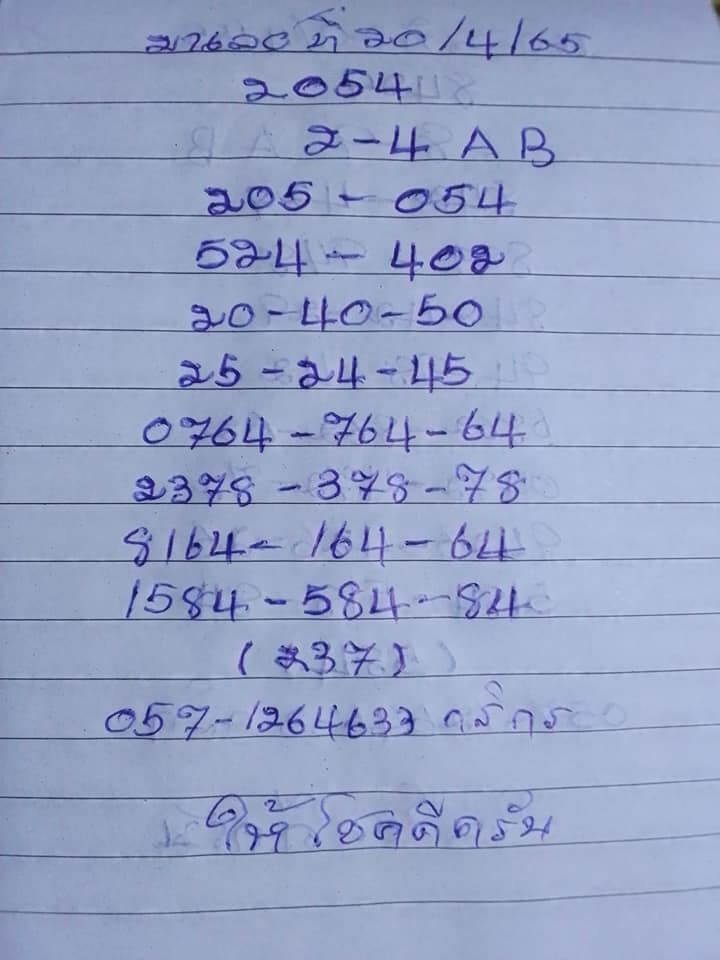 ที่ 20/4/65
2054
2-4 A B
205 - 054
524 - 402
20-40-50
25-24-45
0764-764-64
2378-378-78
8164-164-64
1584-584-84
(237)
057-1264633 กสิกร
ให้โชคดีครับ